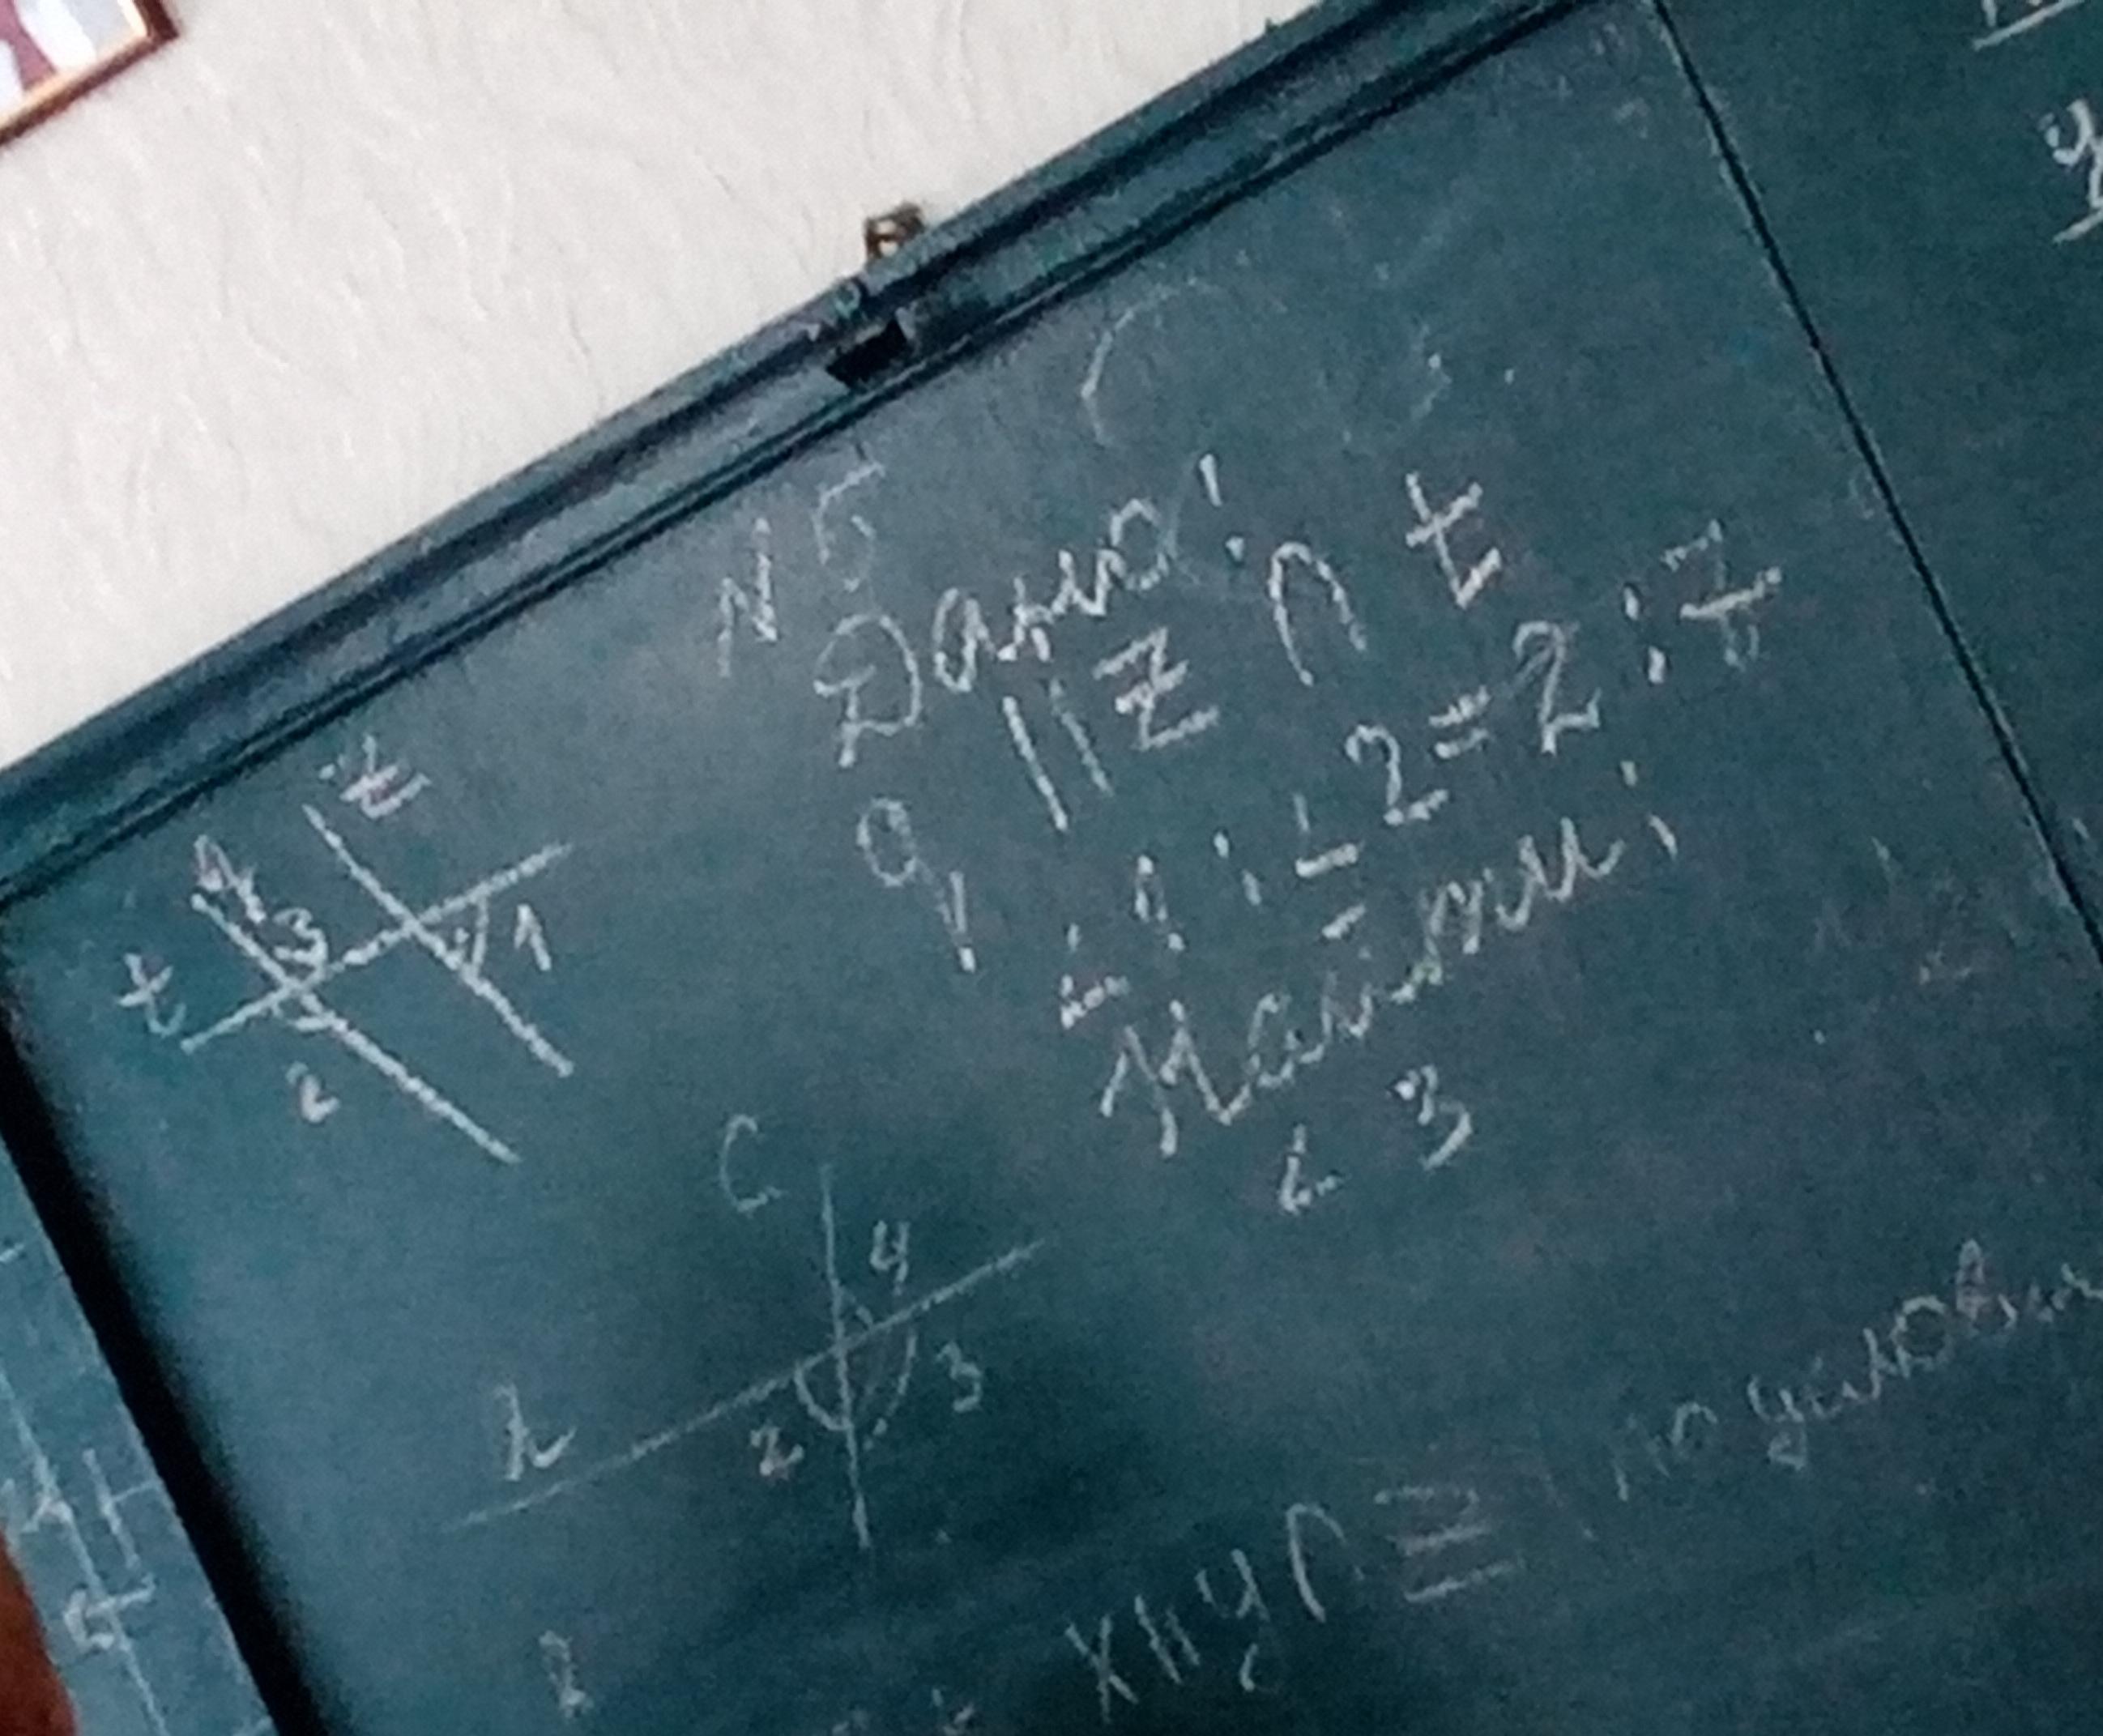 N 5
Дано:
q || z ∩ t
∠1 : ∠2 = 2 : 7
Найти:
∠ 3
z
q
3
t
1
2
C
4
3
2
x || y ∩ z
по условию